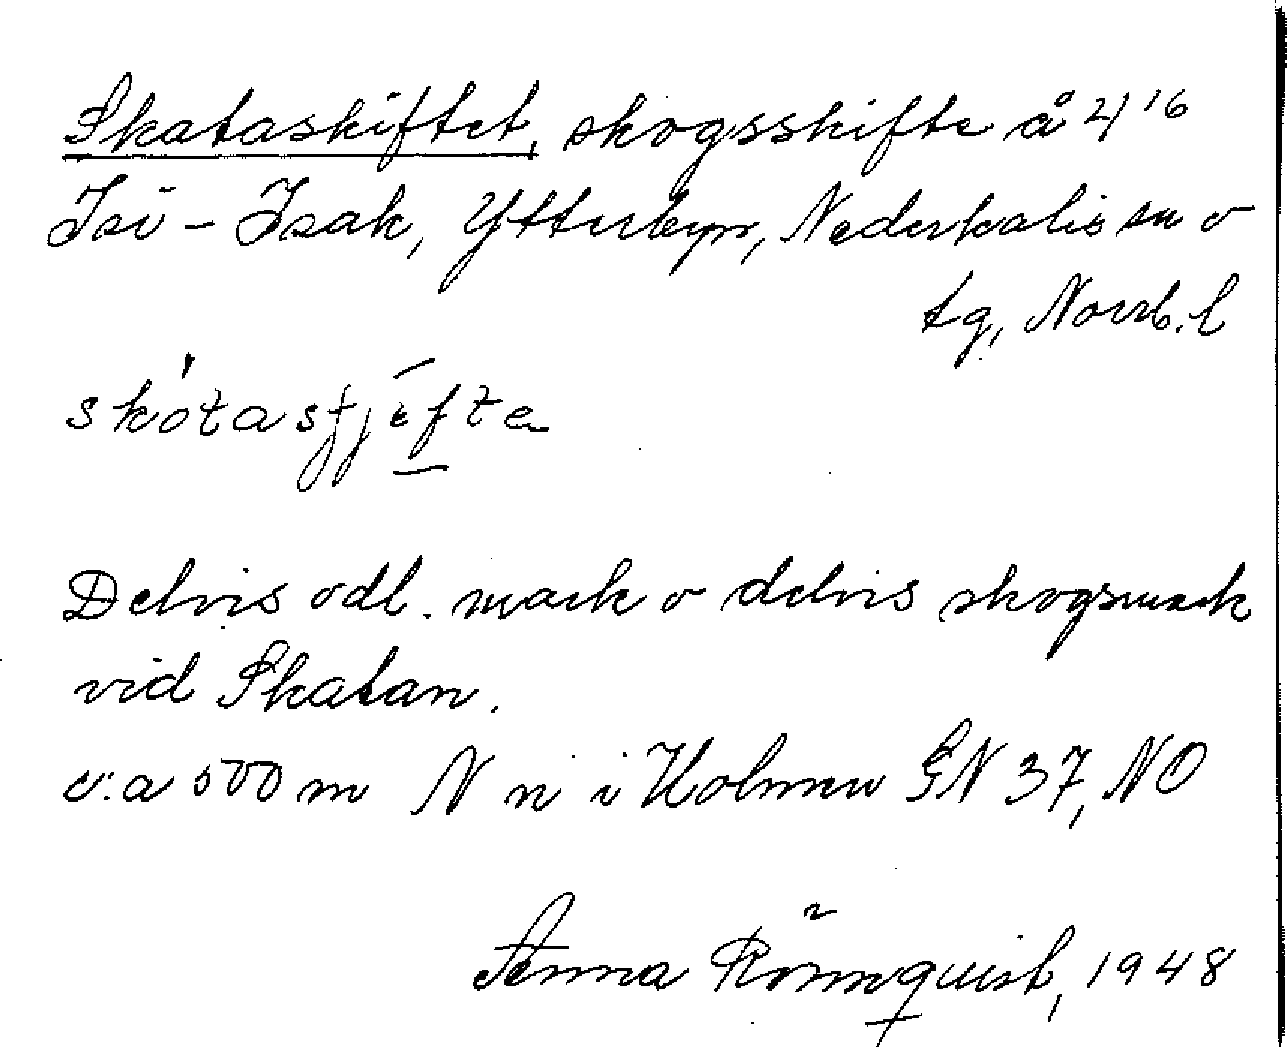 Skataskiftet, skogsskifte å 4¹⁶
Isi - Isak, Ytterbyn, Nederkalix sn o
tg, Norrb. l
skótastjefte
Delvis odl. mark o delvis skogsmark
vid Skatan.
c:a 500 m N n i Holmen GN 37, NO
Anna Rönnquist, 1948